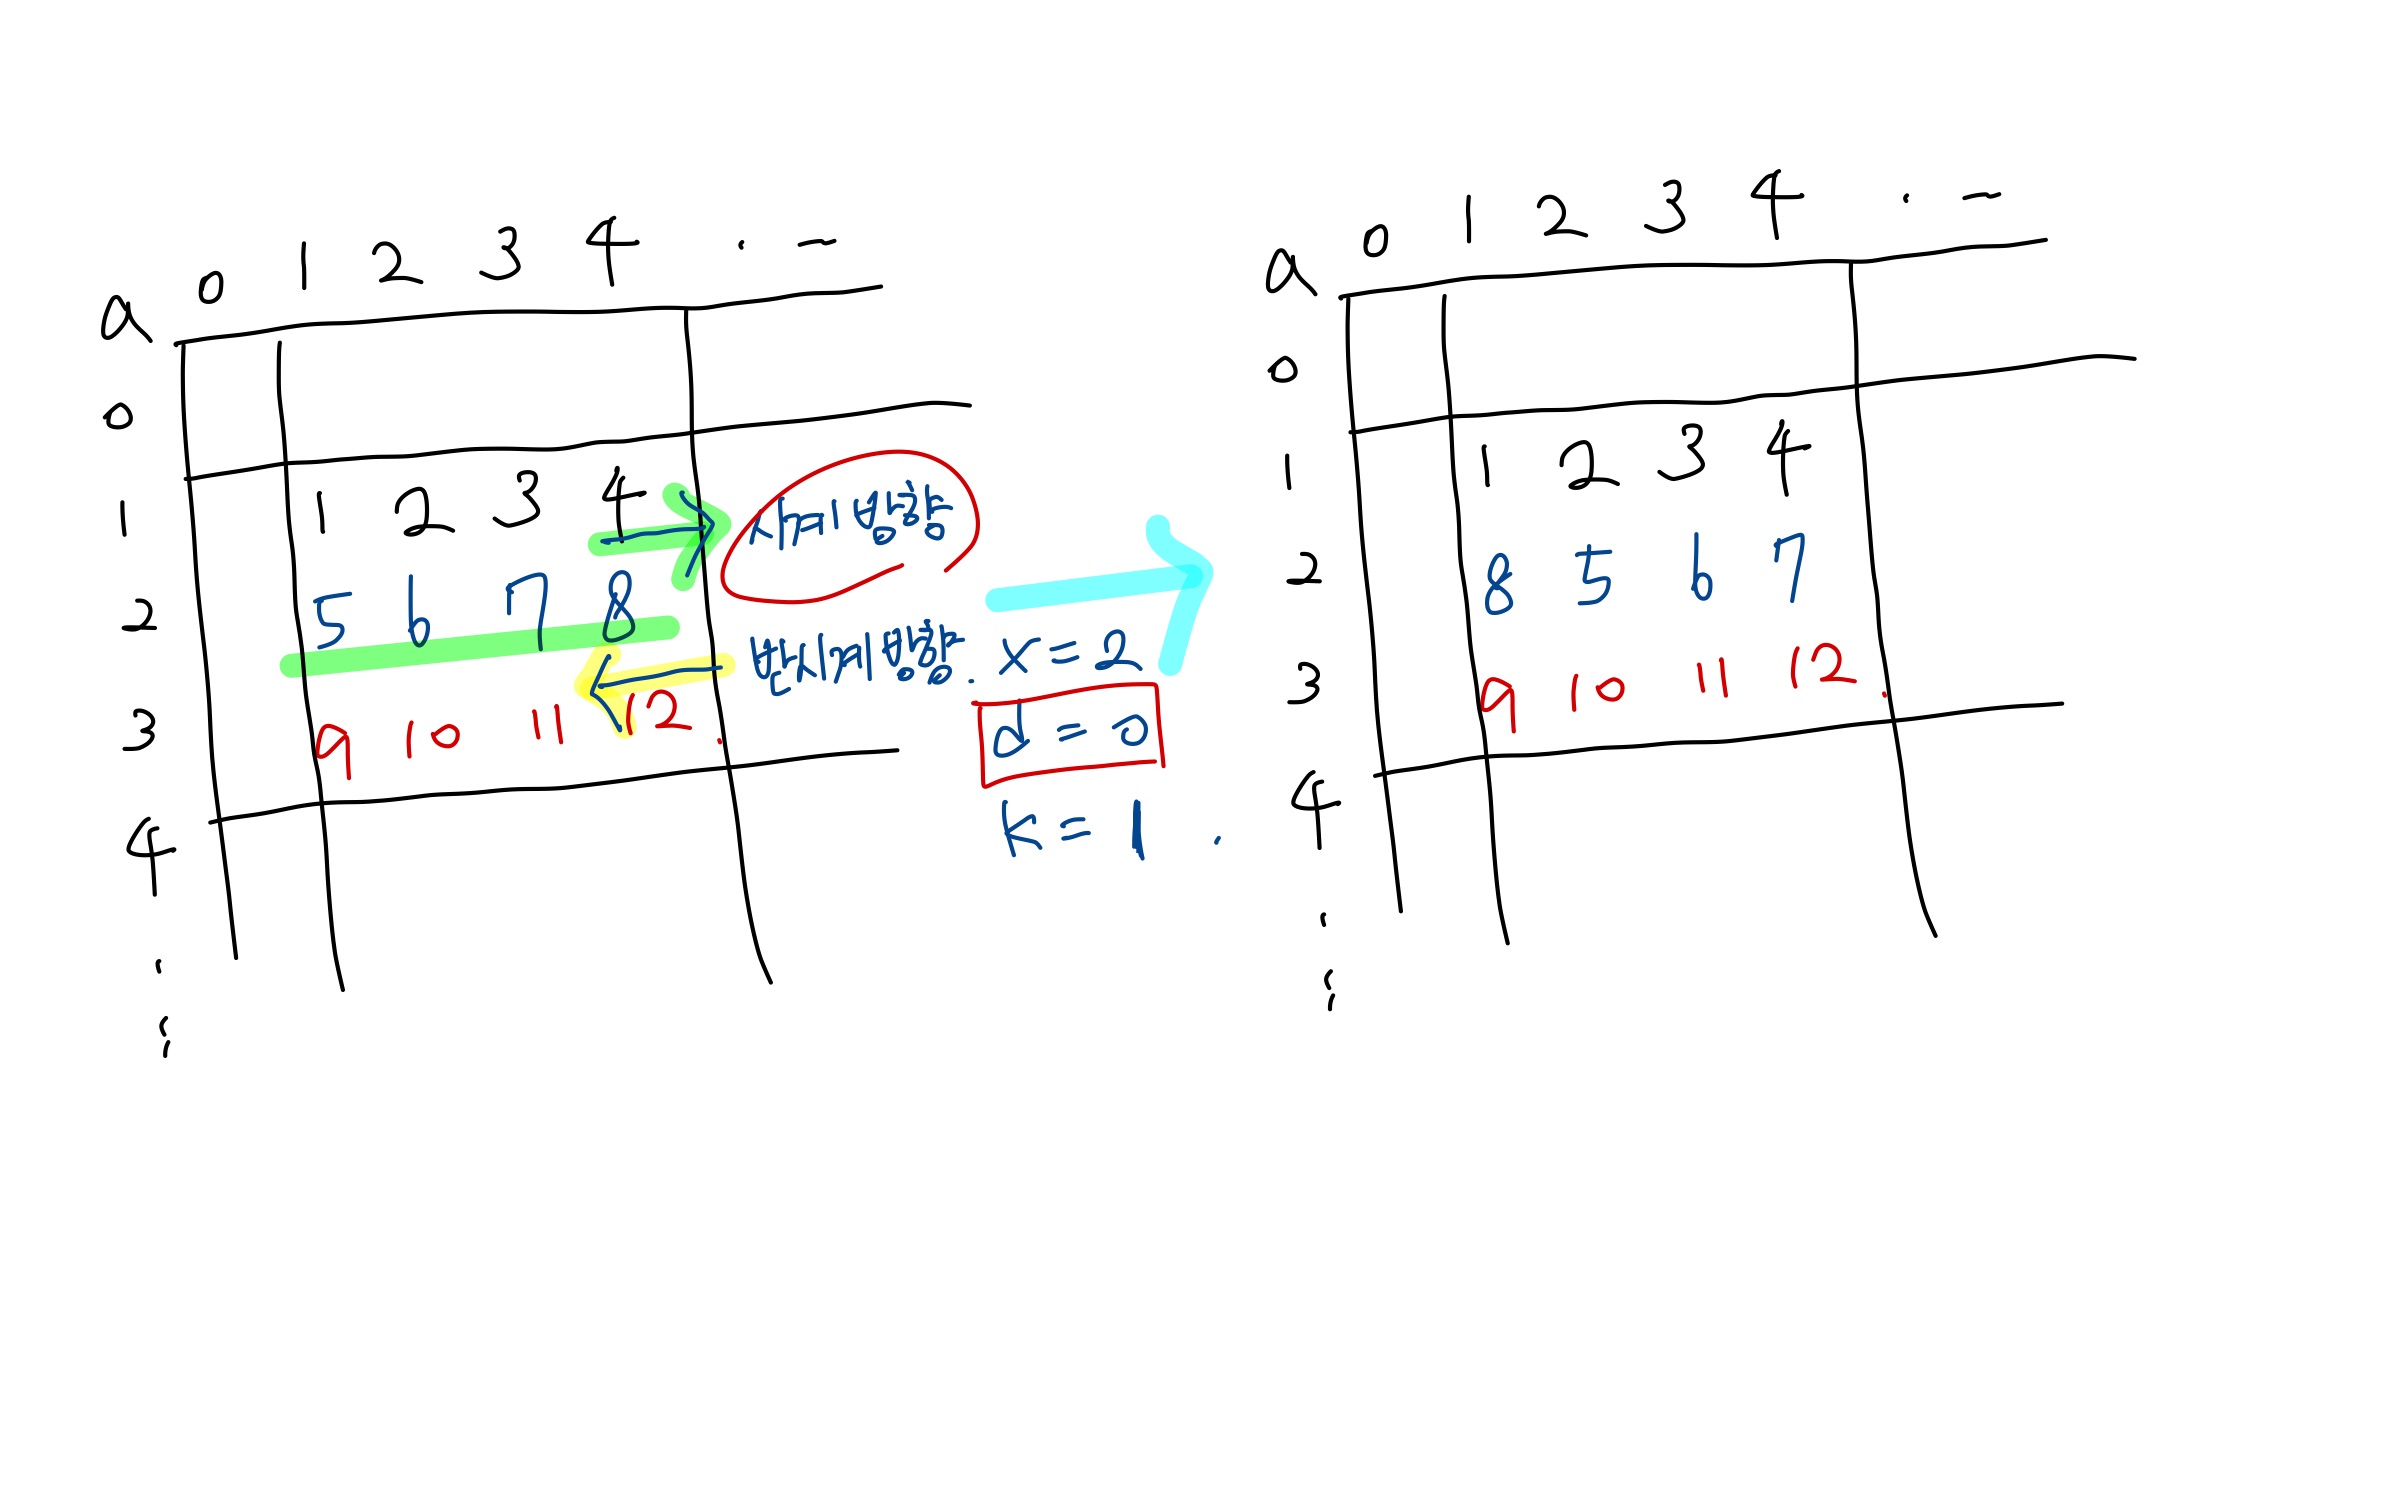 a 0 1 2 3 4 . -
0
1 1 2 3 4 시계방향
2 5 6 7 8
3 9 10 11 12 .
4
반시계방향. x = 2
d = 0
k = 1 .
a 0 1 2 3 4 . -
0
1 1 2 3 4
2 8 5 6 7
3 9 10 11 12 .
4